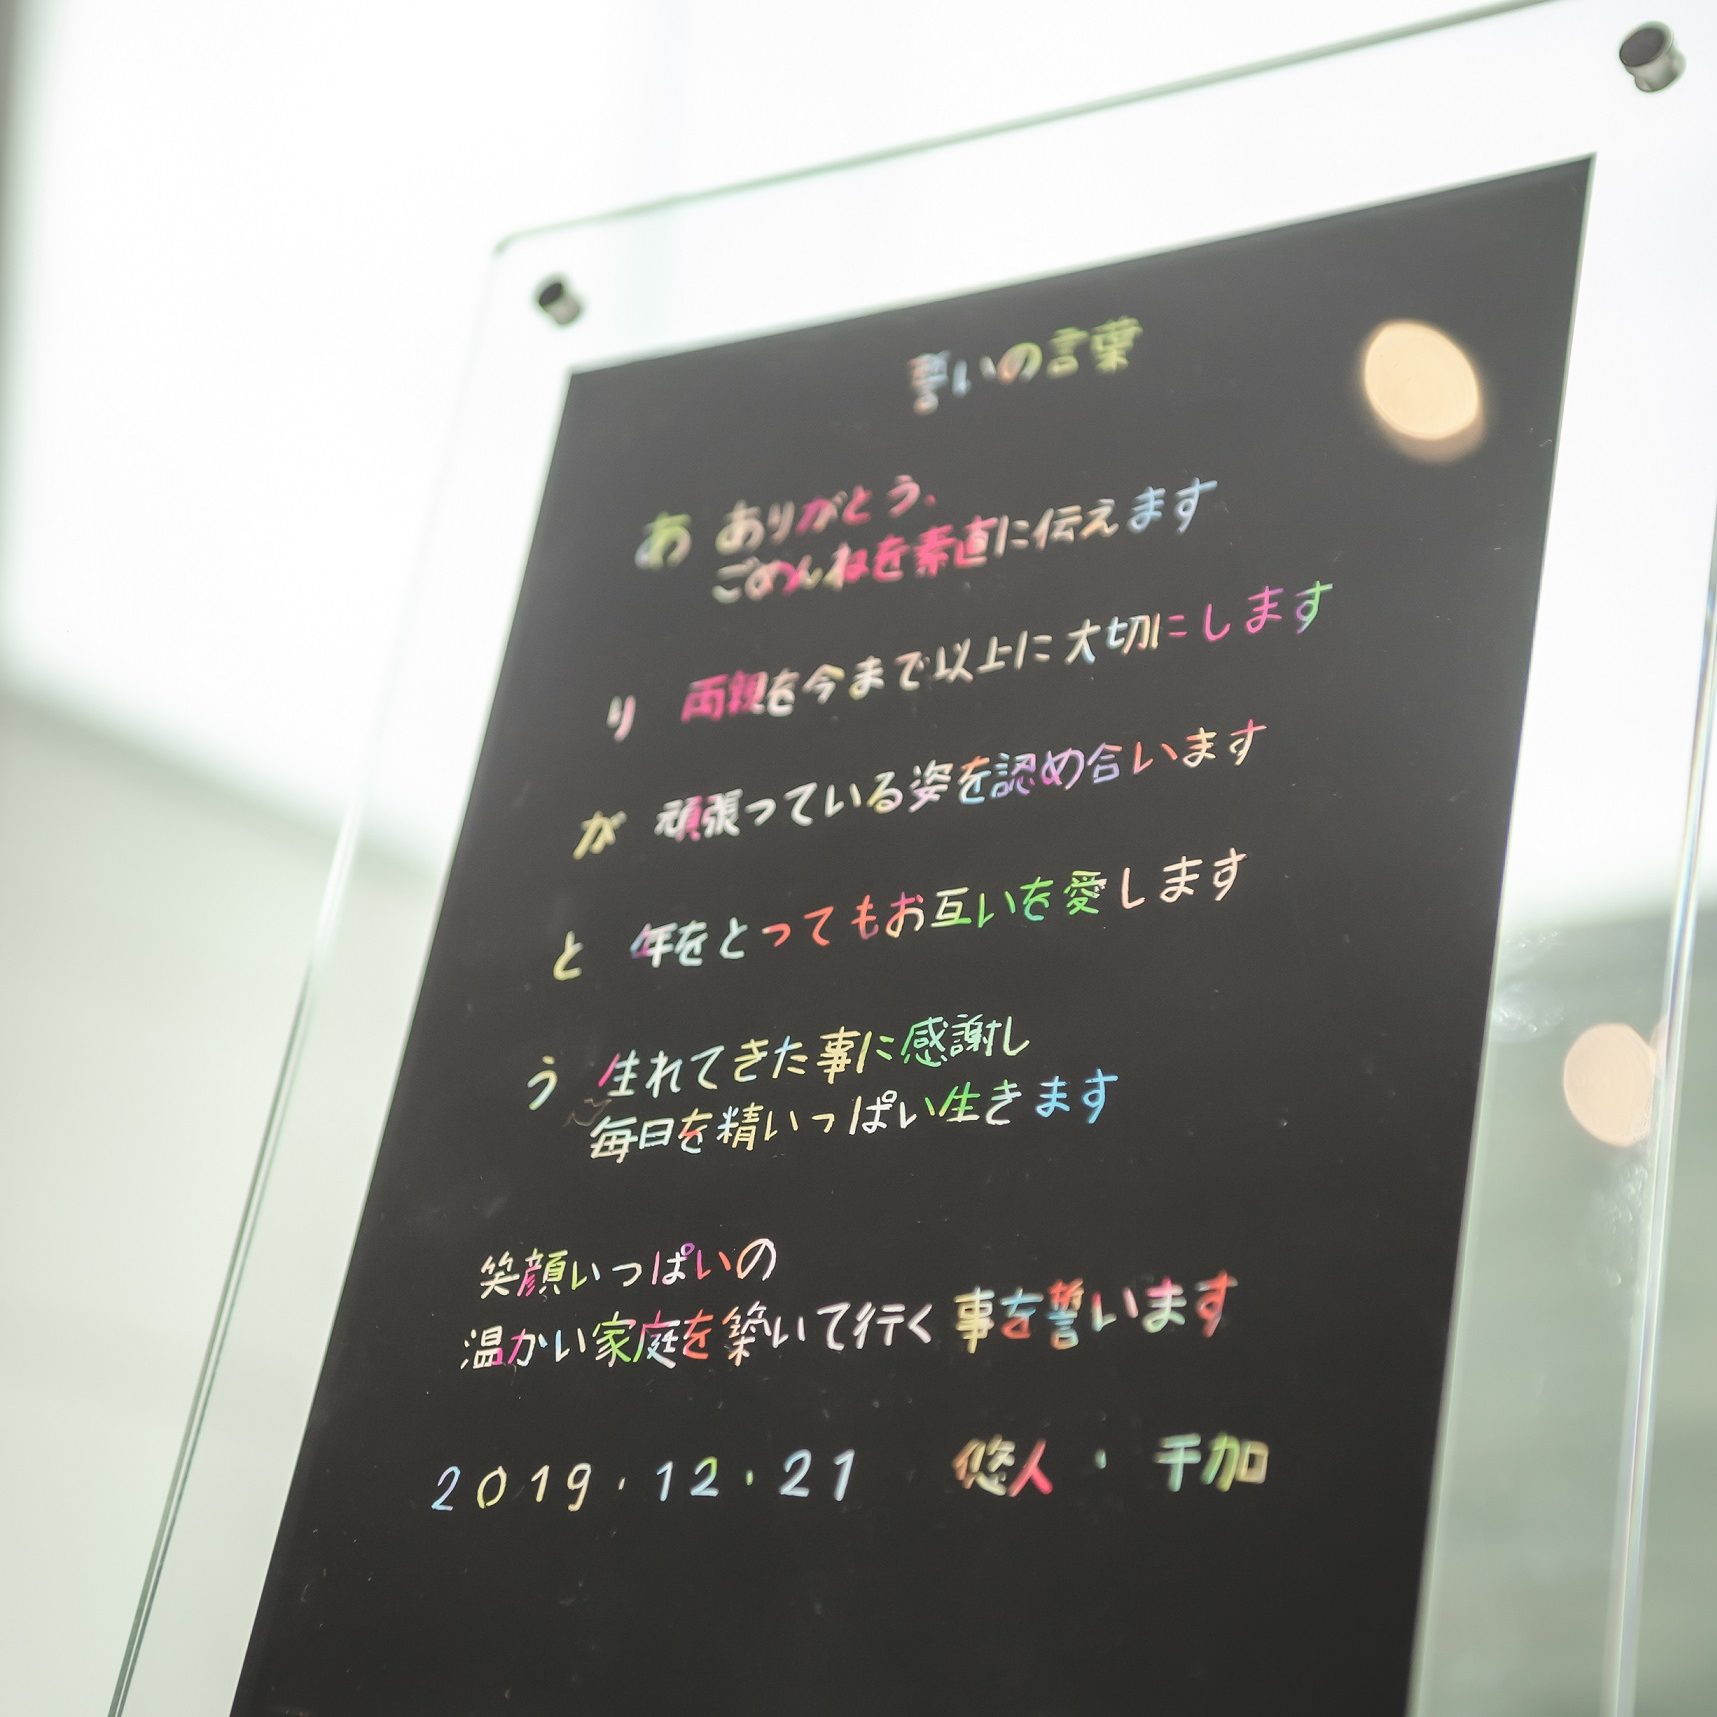 誓いの言葉
あ ありがとう、
ごめんねを素直に伝えます
り 両親を今まで以上に大切にします
が 頑張っている姿を認め合います
と 年をとってもお互いを愛します
う 生れてきた事に感謝し
毎日を精いっぱい生きます
笑顔いっぱいの
温かい家庭を築いて行く事を誓います
2019.12.21 悠人・千加